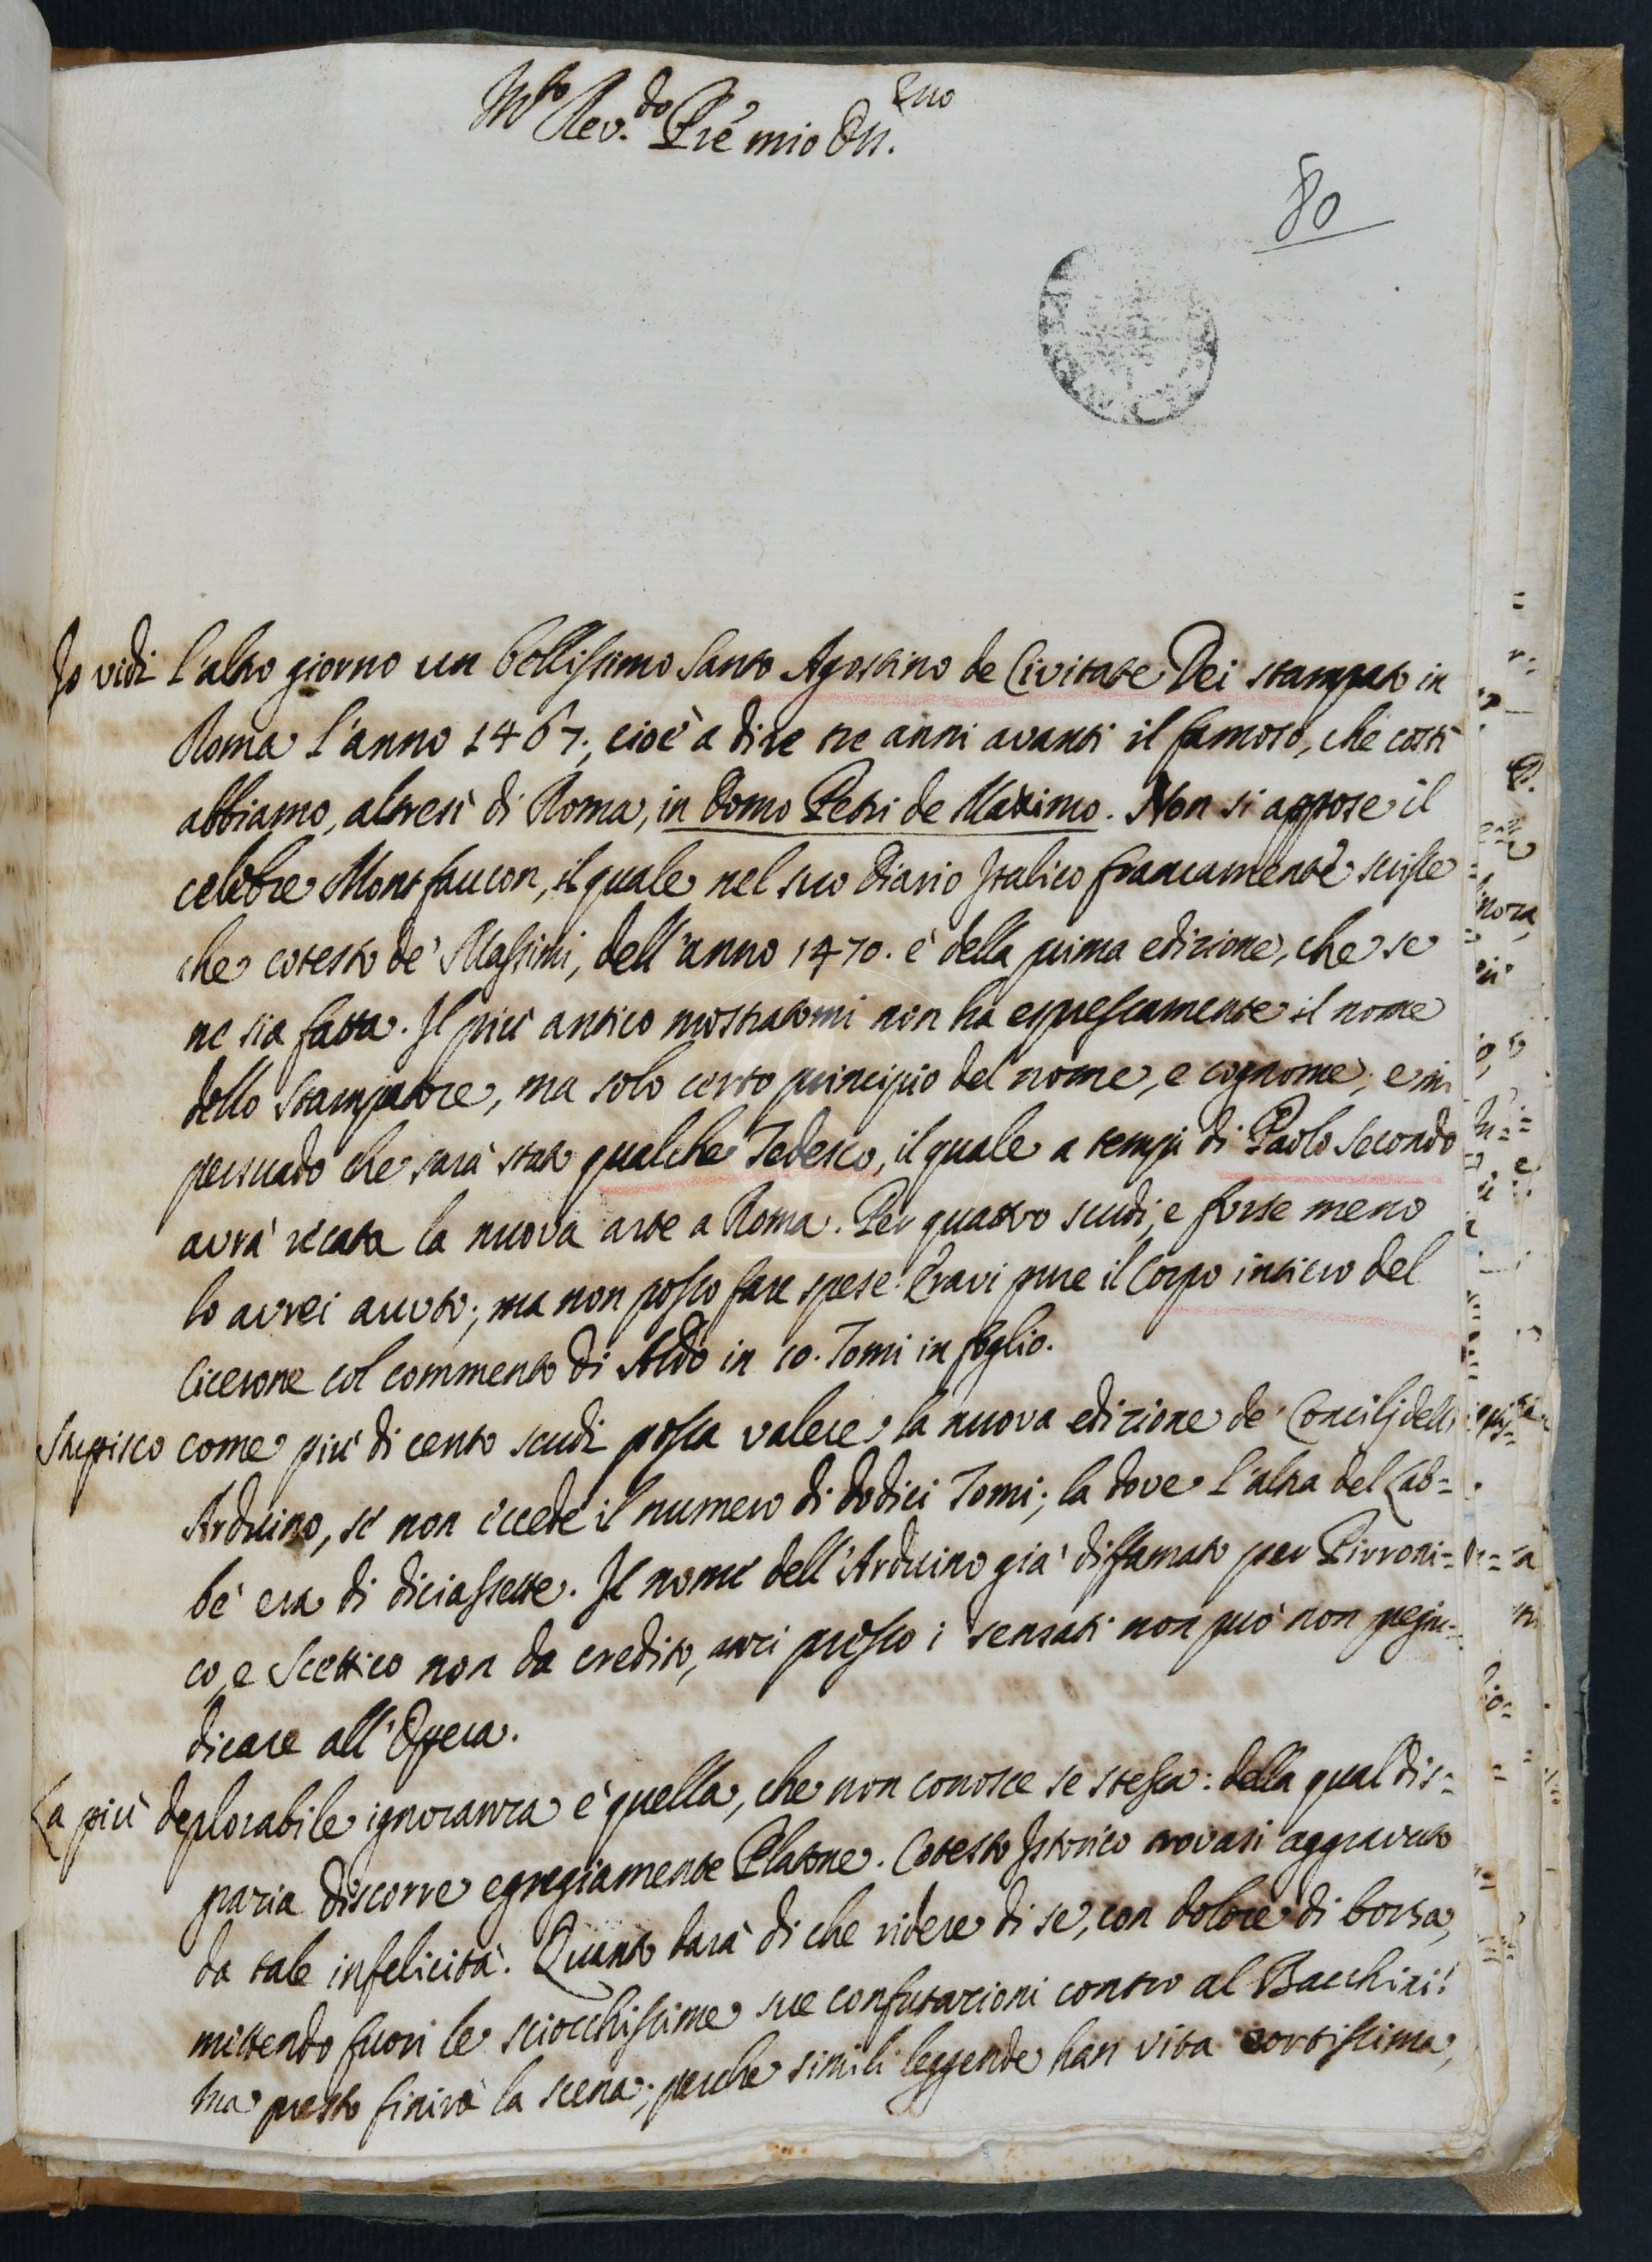 M.to Rev.do Prē mio On.
smo
80
Io vidi l'altro giorno un bellissimo Santo Agostino de Civitate Dei stampato in
Roma l'anno 1467, cioè a dire tre anni avanti il famoso, che costì
abbiamo, altresì di Roma, in domo Petri de Maximo. Non si appose il
celebre Montfaucon, il quale nel suo Diario Italico francamente scrisse
che cotesto de' Massimi, dell'anno 1470. è della prima edizione, che se
ne sia fatta. Il più antico mostratomi non ha espressamente il nome
dello Stampatore, ma solo certo principio del nome, e cognome; e mi
persuado che sarà stato qualche Tedesco, il quale a tempi di Paolo Secondo
avrà recata la nuova arte a Roma. Per quattro scudi, e forse meno
lo avrei avuto; ma non posso fare spese. Eravi pure il Corpo intiero del
Cicerone col commento di Aldo in 10. Tomi in foglio.
Stupisco come più di cento scudi possa valere la nuova edizione de' Concilj dell'
Arduino, se non eccede il numero di dodici Tomi; la dove l'altra del Lab=
bè era di diciassette. Il nome dell'Arduino già diffamato per Pirroni=
co, e Scettico non da credito, anzi presso i sensati non può non pregiu=
dicare all'Opera.
La più deplorabile ignoranza è quella, che non conosce se stessa: della qual dis=
grazia discorre egregiamente Platone. Cotesto Istorico trovasi aggravato
da tale infelicità. Quanto darà di che ridere di se, con dolore di borsa,
mettendo fuori le sciocchissime sue confutazioni contro al Bacchini!
ma presto finirà la scena; perche simili leggende han vita cortissima,